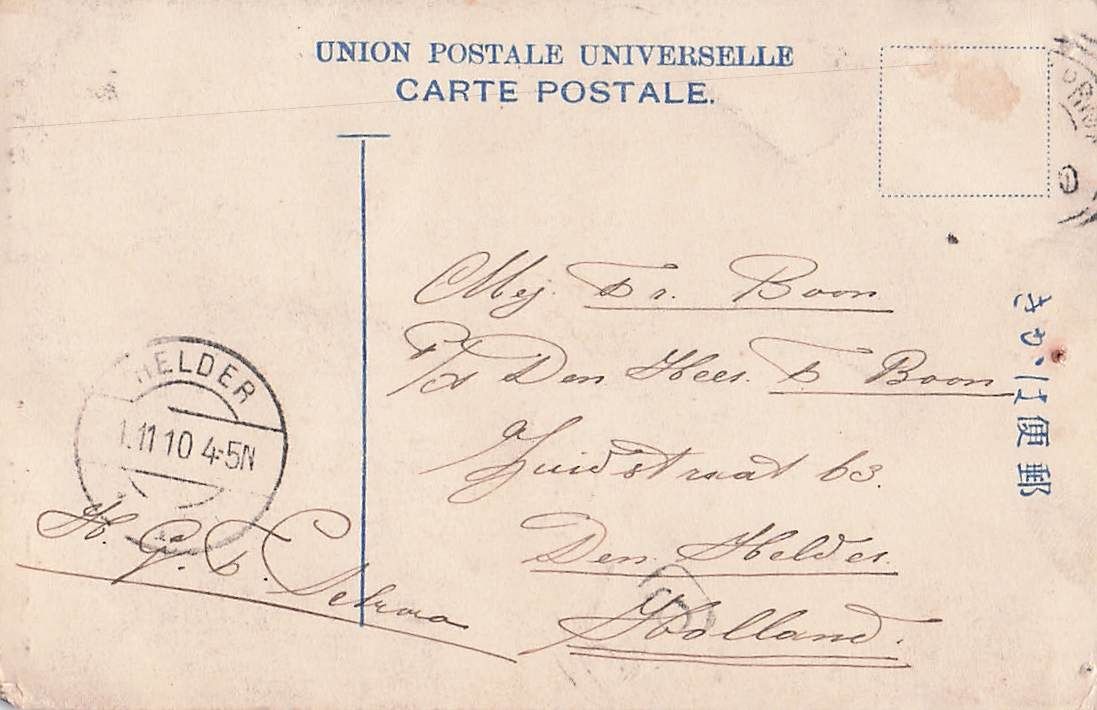 UNION POSTALE UNIVERSELLE
CARTE POSTALE.
Mej. Tr. Boon
P/A Den Heer. T. Boon
Zuidstraat 63.
Den Helder.
Holland.
郵便はかき
HELDER
1.11 10 4-5N
H. G. D.